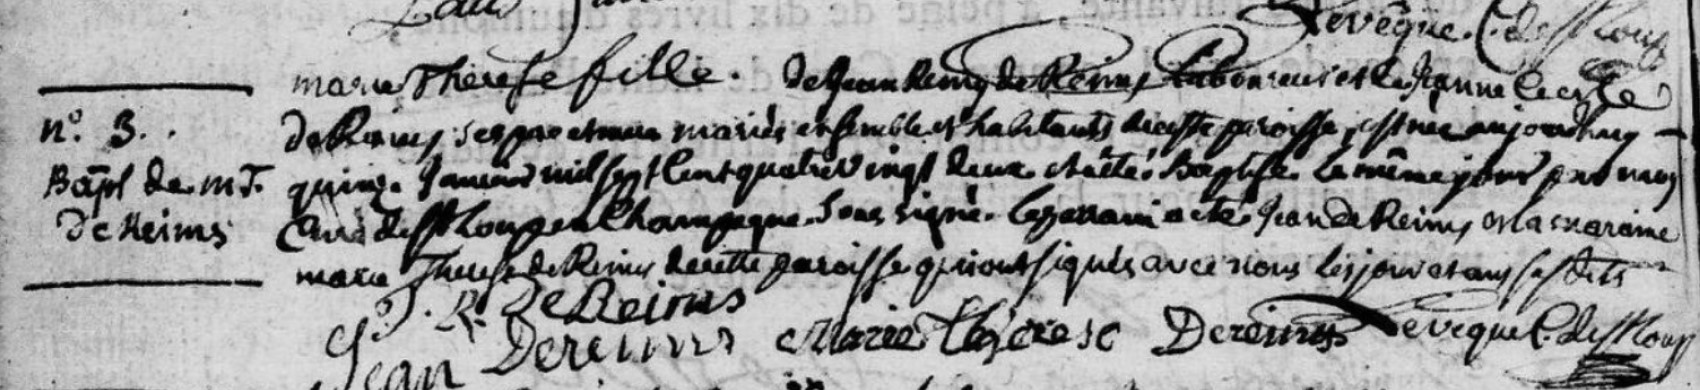 Levêque C. de St Loup
marie Therese fille. de Jean Remy de Reims Laboureur et de Jeanne
n.º 3.
de Reims ses pere et mere mariés ensemble et habitants de cette paroisse, est née aujourdhuy
Bapt de m.T.
quinze Janvier mil sept Cent quatre vingt deux et a été Baptisée le même jour par nous
de Reims
Curé de St Loup en Champagne Sous signé. le parain a été Jean de Reims et la maraine
marie Therese de Reims de cette paroisse qui ont signés avec nous les jour et an susdits
J. R. De Reims
Jean Dereims Marie Therese Dereims Leveque C. de St Loup